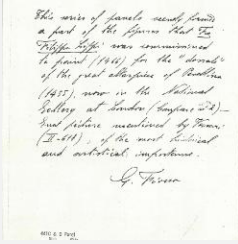 This series of panels surely forms
a part of the figures that Fra
Filippo Lippi was commissioned
to paint (1466) for the "donali"
of the great altarpiece of Pesellino
(1455), now in the National
Gallery at London (
that picture mentioned by Vasari
(II-614), of the most historical
and artistical importance.
G. Fiocco